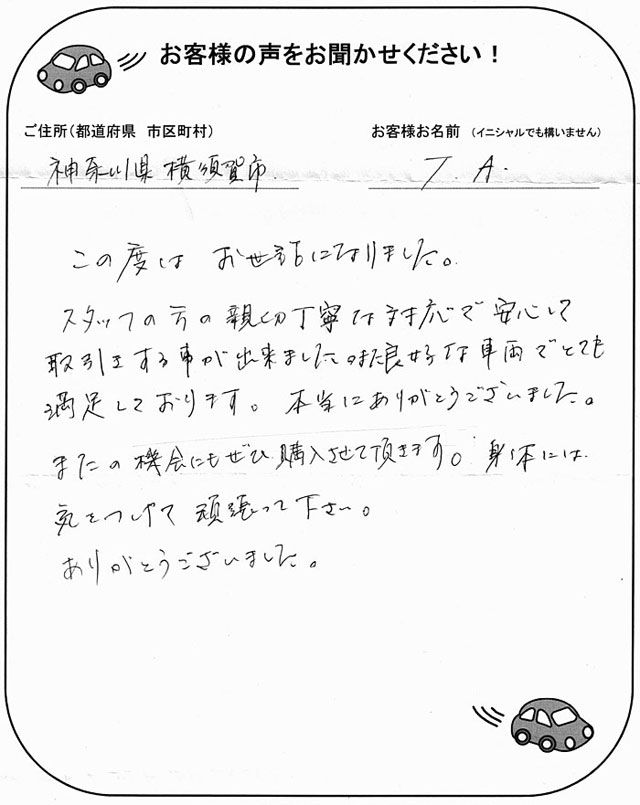 お客様の声をお聞かせください！
ご住所（都道府県 市区町村）
お客様お名前 （イニシャルでも構いません）
神奈川県横須賀市
T. A.
この度は お世話になりました。
スタッフの方の親切丁寧な対応で安心して
取引きする事が出来ました。また良好な車両でとても
満足しております。本当にありがとうございました。
またの機会にもぜひ購入させて頂きます。身体には
気をつけて 頑張って下さい。
ありがとうございました。